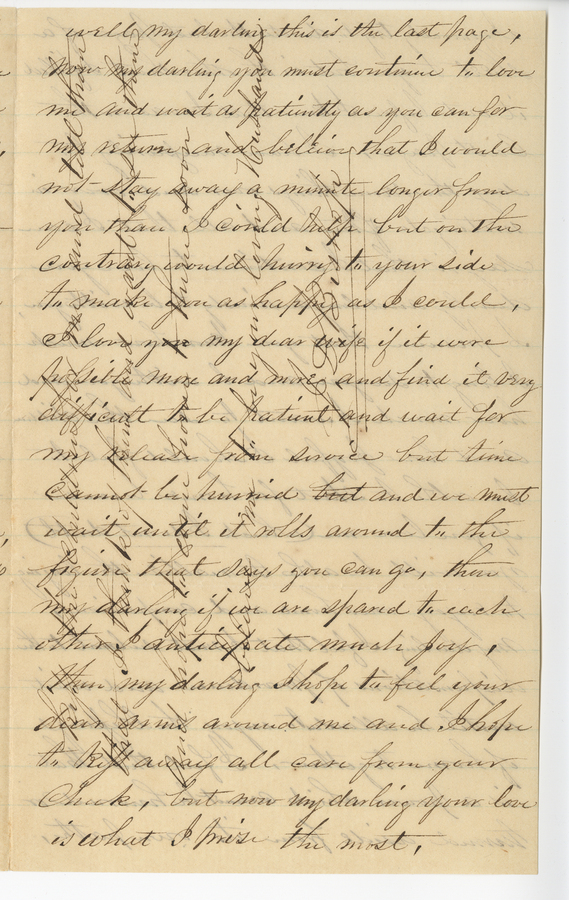 well my darling this is the last page,
now my darling you must continue to love
me and wait as patiently as you can for
my return and believe that I would
not stay away a minute longer from
you than I could help but on the
contrary would hurry to your side
to make you as happy as I could,
I love you my dear wife if it were
possible more and more, and find it very
difficult to be patient and wait for
my release from service but time
cannot be hurried but and we must
wait until it rolls around to the
figure that says you can go, then
my darling if we are spared to each
other I anticipate much joy,
then my darling I hope to feel your
dear arms around me and I hope
to kiss away all care from your
cheek, but now my darling your love
is what I prise the most,
and tell them
that I think of them and want to see them
and hope to come home to them soon
believe me to be your loving Husband